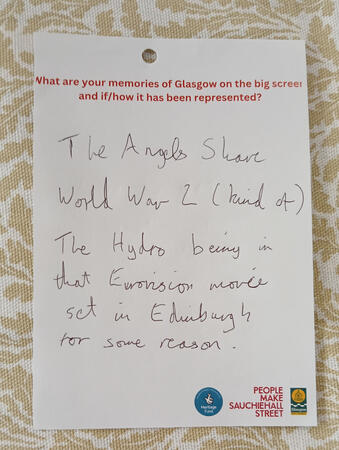 What are your memories of Glasgow on the big screen
and if/how it has been represented?
The Angels Share
World War Z (kind of)
The Hydro being in
that Eurovision movie
set in Edinburgh
for some reason.
Heritage
Fund
PEOPLE
MAKE
SAUCHIEHALL
STREET